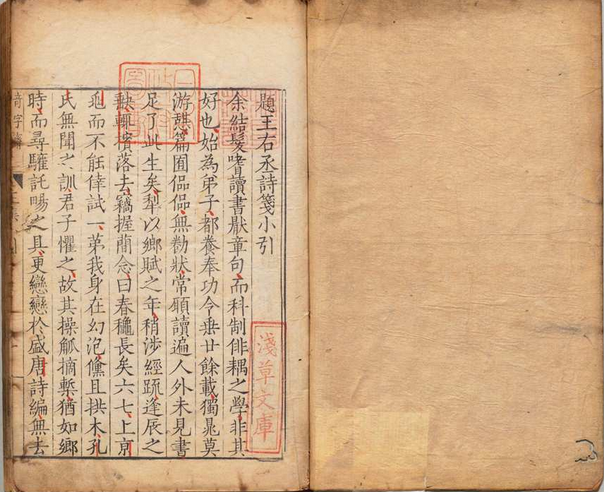 題王右丞詩箋小引
余結髮嗜讀書厭章句而科制俳耦之學非其
好也始為弟子都養奉功令垂廿餘載獨晁莫
游謀篇囿偘偘無勸狀常願讀遍人外未見書
足了此生矣犁以鄉賦之年稍涉經疏逢辰之
輒檳落去竊握蘭念曰春穐長矣六七上京
而不能倖試一弟我身在幻泡儵且拱木孔
氏無聞之訓君子懼之故其操觚摘槧猶如鄉
時而尋驩託暘之具更戀戀於盛唐詩編無去
淺草文庫